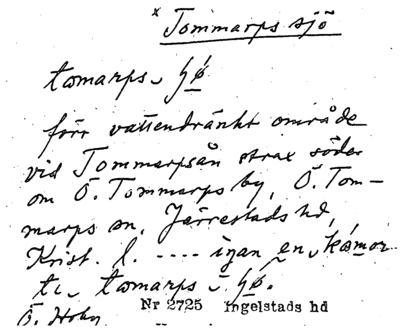 × Tommarps sjö
tomarps
förr vattendränkt område
vid Tommarpsån strax söder
om Ö. Tommarps by, Ö. Tom-
marps sn, Järrestads hd,
Krist. l. ---- igan en
tomarps
Nr 2725 Ingelstads hd
Ö. Hoby